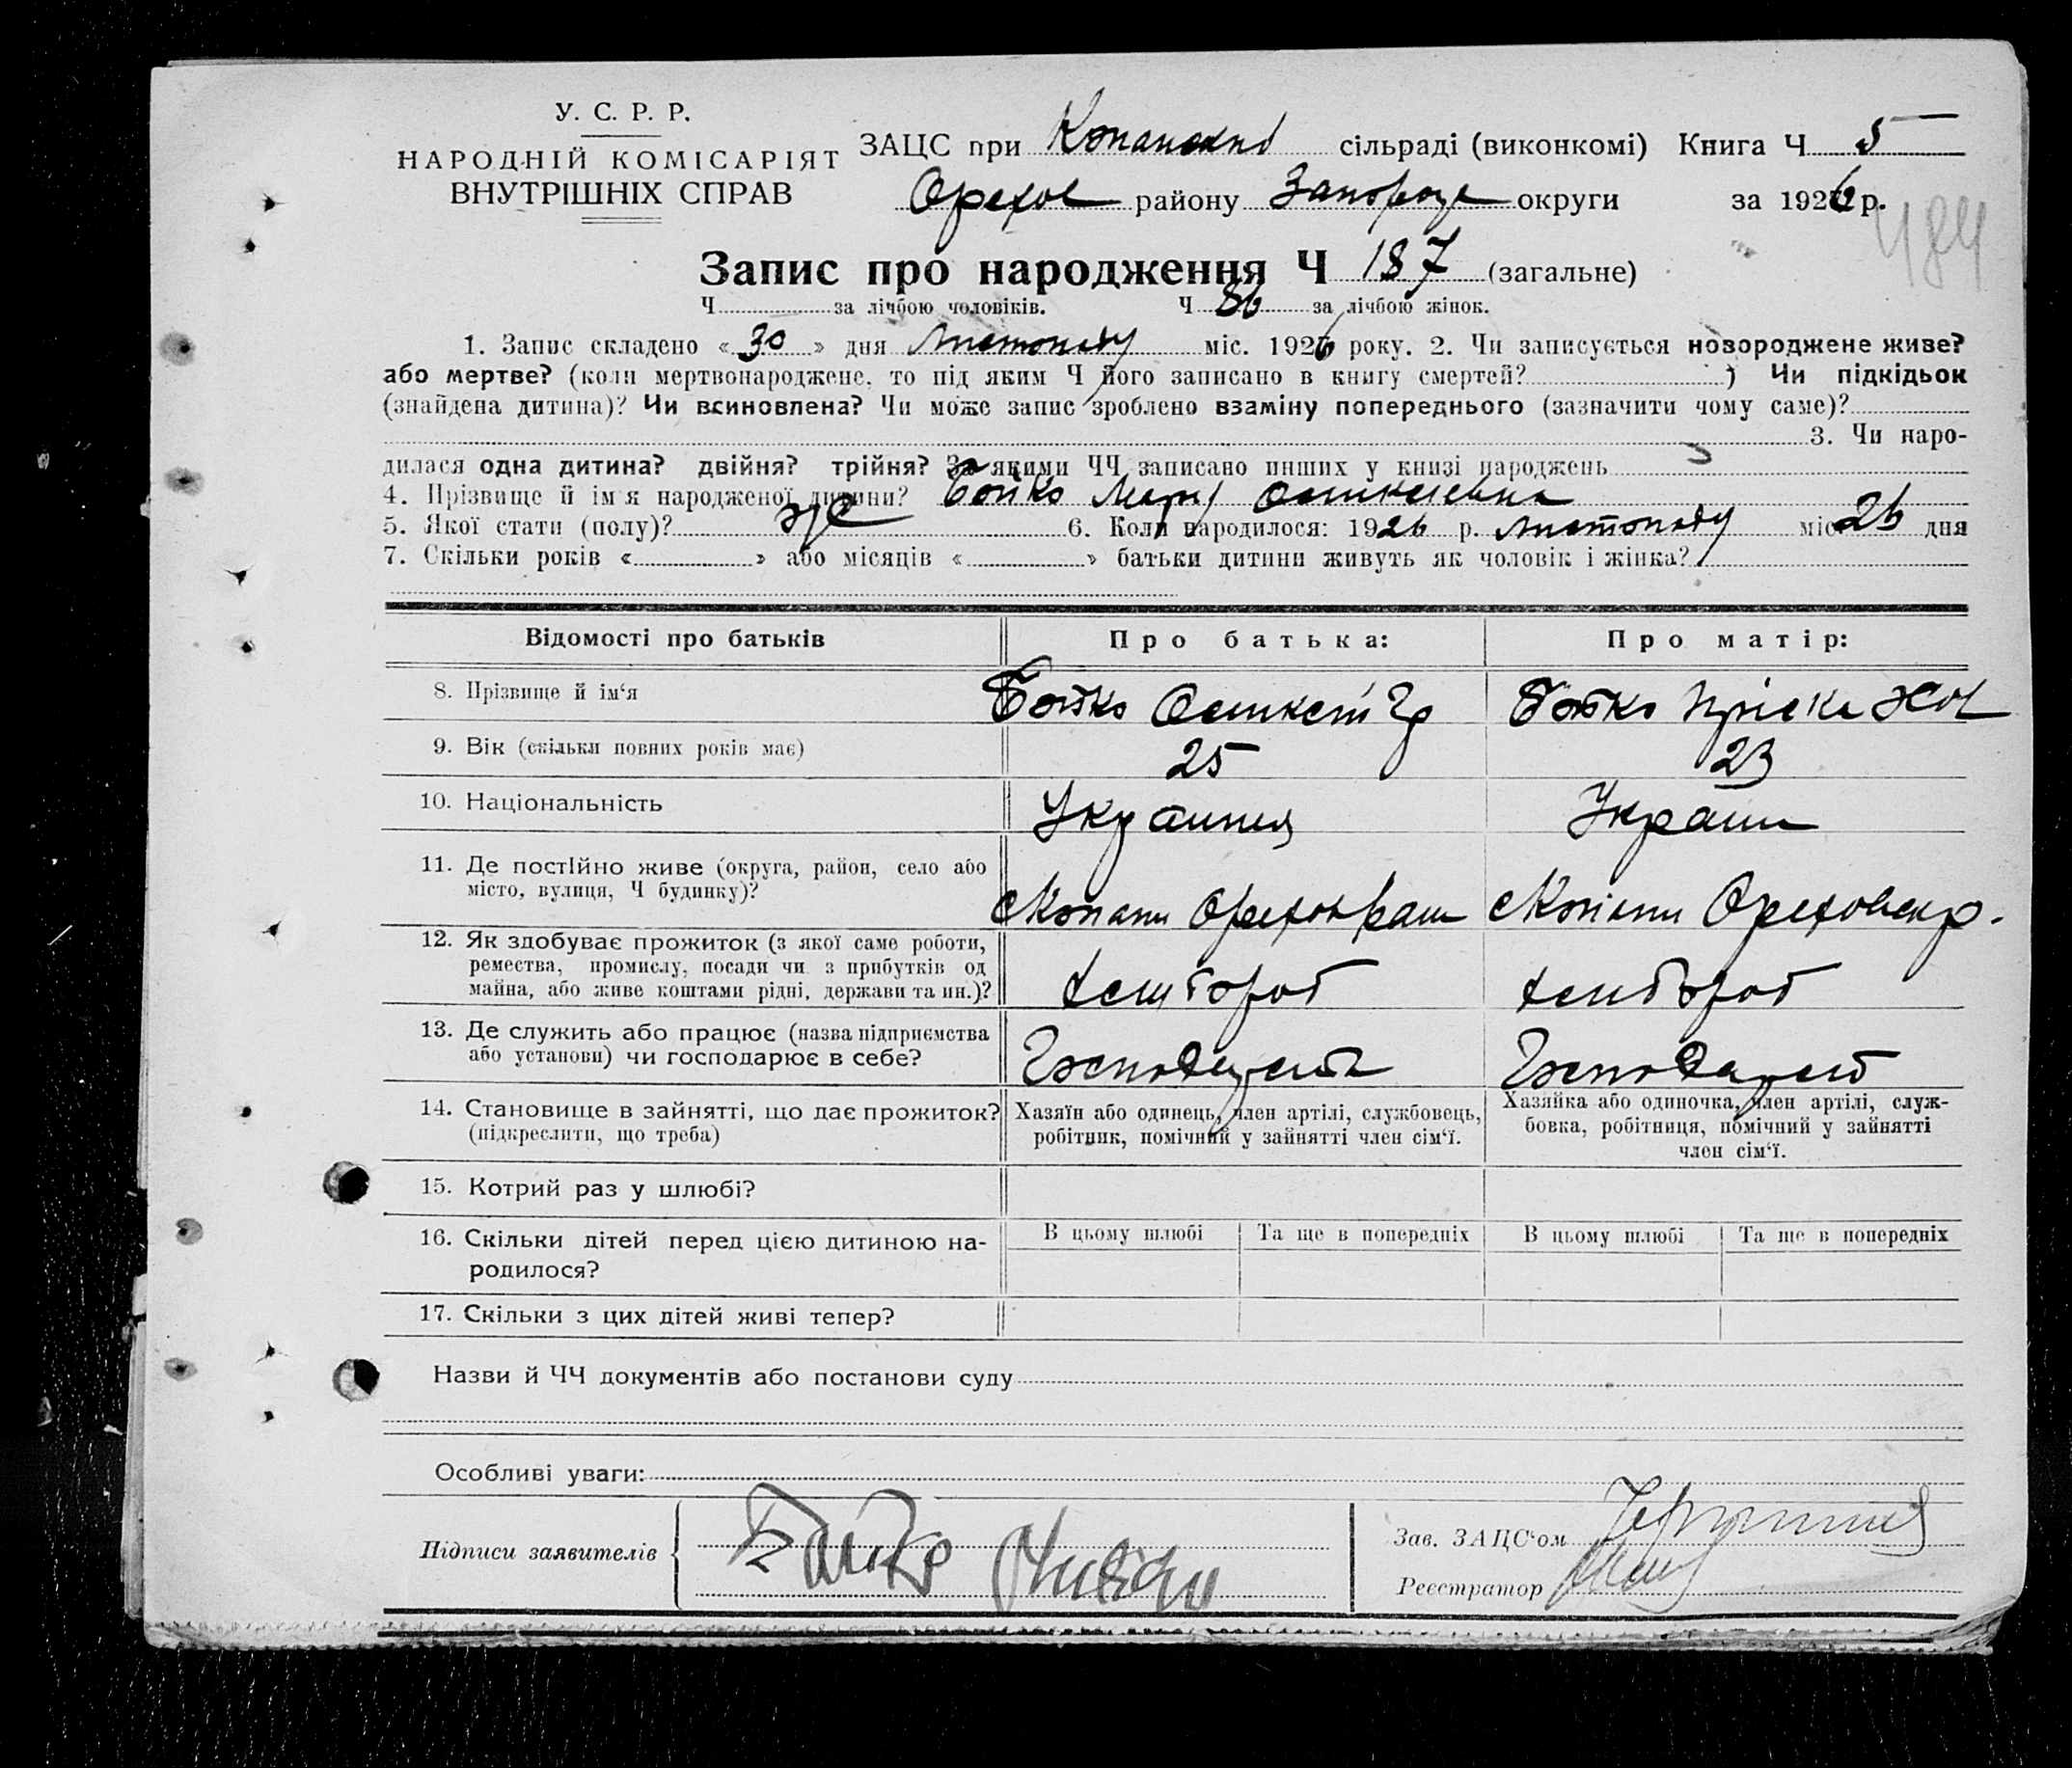 У. С. Р. Р.
НАРОДНІЙ КОМІСАРІЯТ
ВНУТРІШНІХ СПРАВ
ЗАЦС при Копанській сільраді (виконкомі) Книга Ч 5
Орехов району Запорозь округи за 1926 р.
484
Запис про народження Ч 187 (загальне)
Ч за лічбою чоловіків. Ч 86 за лічбою жінок.
1. Запис складено « 30 » дня Листопаду міс. 1926 року. 2. Чи записується новороджене живе?
або мертве? (коли мертвонароджене, то під яким Ч його записано в книгу смертей? ) Чи підкідьок
(знайдена дитина)? Чи всиновлена? Чи може запис зроблено взаміну попереднього (зазначити чому саме)?
3. Чи наро-
дилася одна дитина? двійня? трійня? За якими ЧЧ записано инших у книзі народжень
4. Прізвище й ім'я народженої дитини? Бойко Мар
5. Якої стати (полу)? ж 6. Коли народилося: 1926 р. листопаду міс. 26 дня
7. Скільки років « » або місяців « » батьки дитини живуть як чоловік і жінка?
Відомості про батьків Про батька: Про матір:
8. Прізвище й ім‘я Бойко Бойко Пріска
9. Вік (скільки повних років має) 25 23
10. Національність Украинец Украин
11. Де постійно живе (округа, район, село або
місто, вулиця, Ч будинку)? с Копани Орехов с Копани Ореховск р.
12. Як здобуває прожиток (з якої саме роботи,
ремества, промислу, посади чи з прибутків од
майна, або живе коштами рідні, держави та ин.)? хлибороб хлибороб
13. Де служить або працює (назва підприємства
або установи) чи господарює в себе? Господарств Господарст
14. Становище в зайнятті, що дає прожиток?
(підкреслити, що треба)
Хазяїн або одинець, член артілі, службовець,
робітник, помічний у зайнятті член сім‘ї.
Хазяйка або одиночка, член артілі, служ-
бовка, робітниця, помічний у зайнятті
член сім‘ї.
15. Котрий раз у шлюбі?
16. Скільки дітей перед цією дитиною на-
родилося?
В цьому шлюбі Та ще в попередніх В цьому шлюбі Та ще в попередніх
17. Скільки з цих дітей живі тепер?
Назви й ЧЧ документів або постанови суду
Особливі уваги:
Підписи заявителів Бойко
Зав. ЗАЦС‘ом
Реєстратор